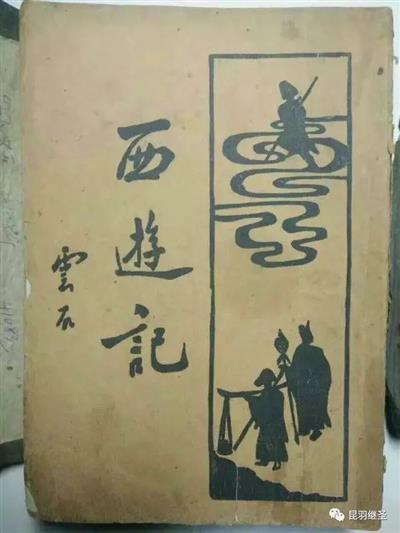 西遊記
雲石
昆羽继圣